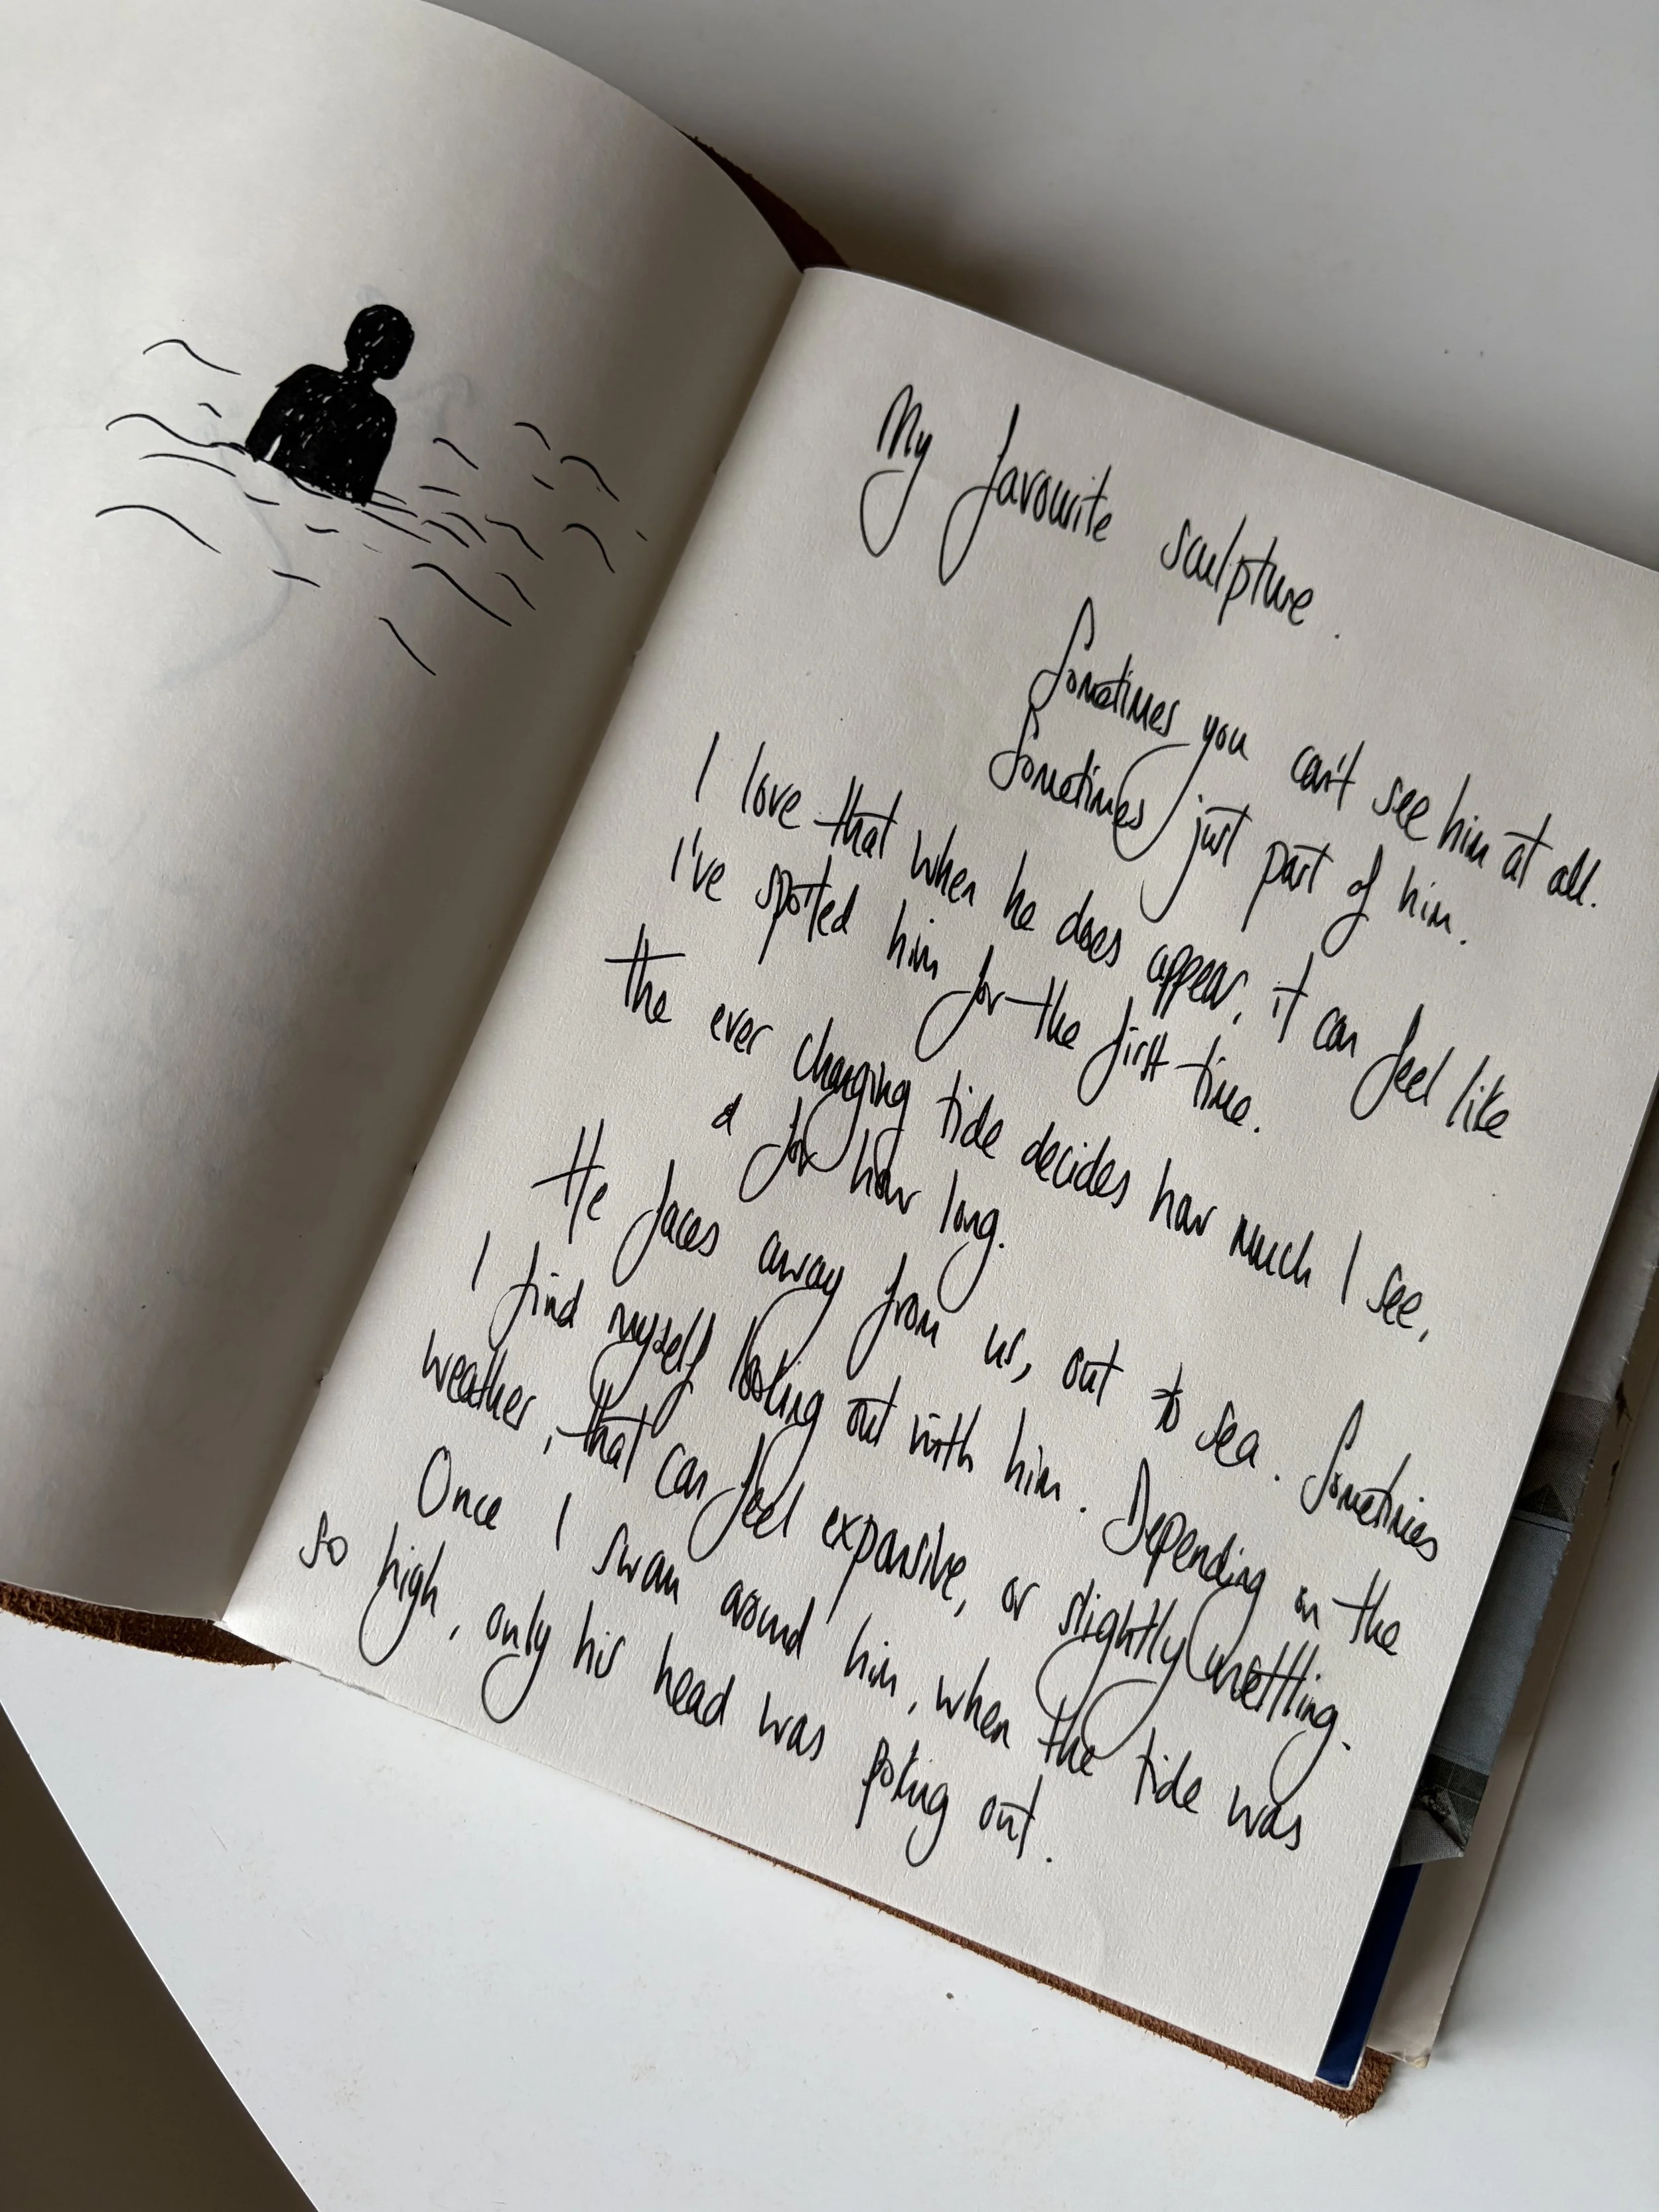 My favourite sculpture.
Sometimes you can't see him at all.
Sometimes just part of him.
I love that when he does appear, it can feel like
I've spotted him for the first time.
The ever changing tide decides how much I see,
& for how long.
He faces away from us, out to sea. Sometimes
I find myself looking out with him. Depending on the
weather, that can feel expansive, or slightly unsettling.
Once I swam around him, when the tide was
so high, only his head was poking out.